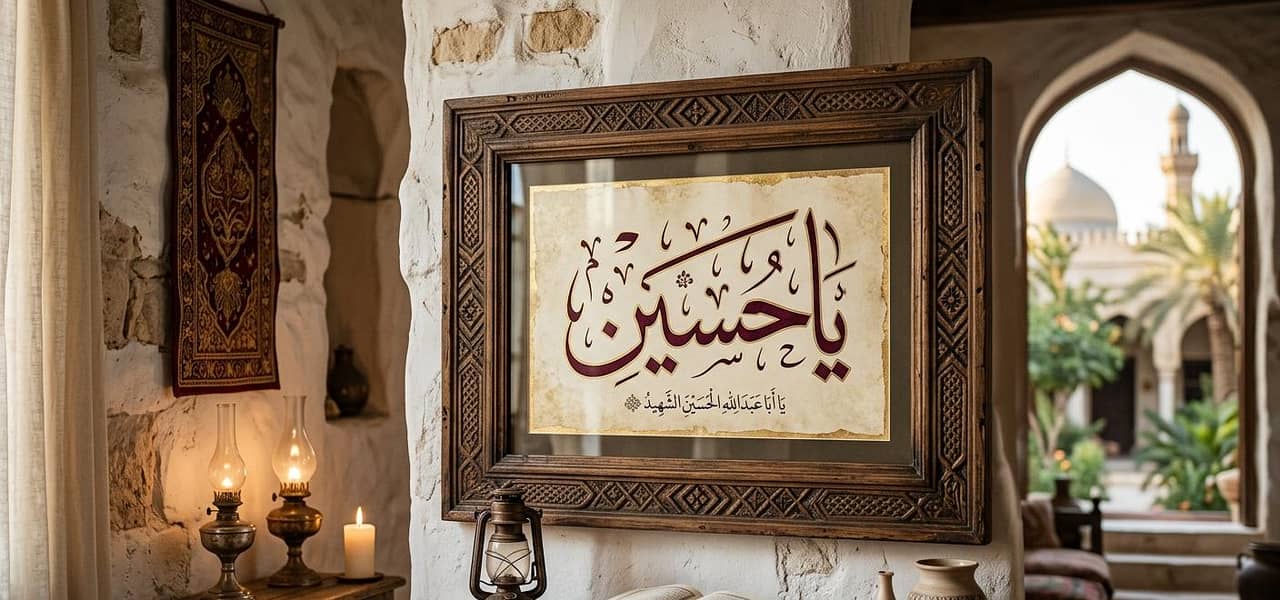 يا حسين
يَا أَبَا عَبْدَالله الْحُسَيْنِ الشَّهِيدُ